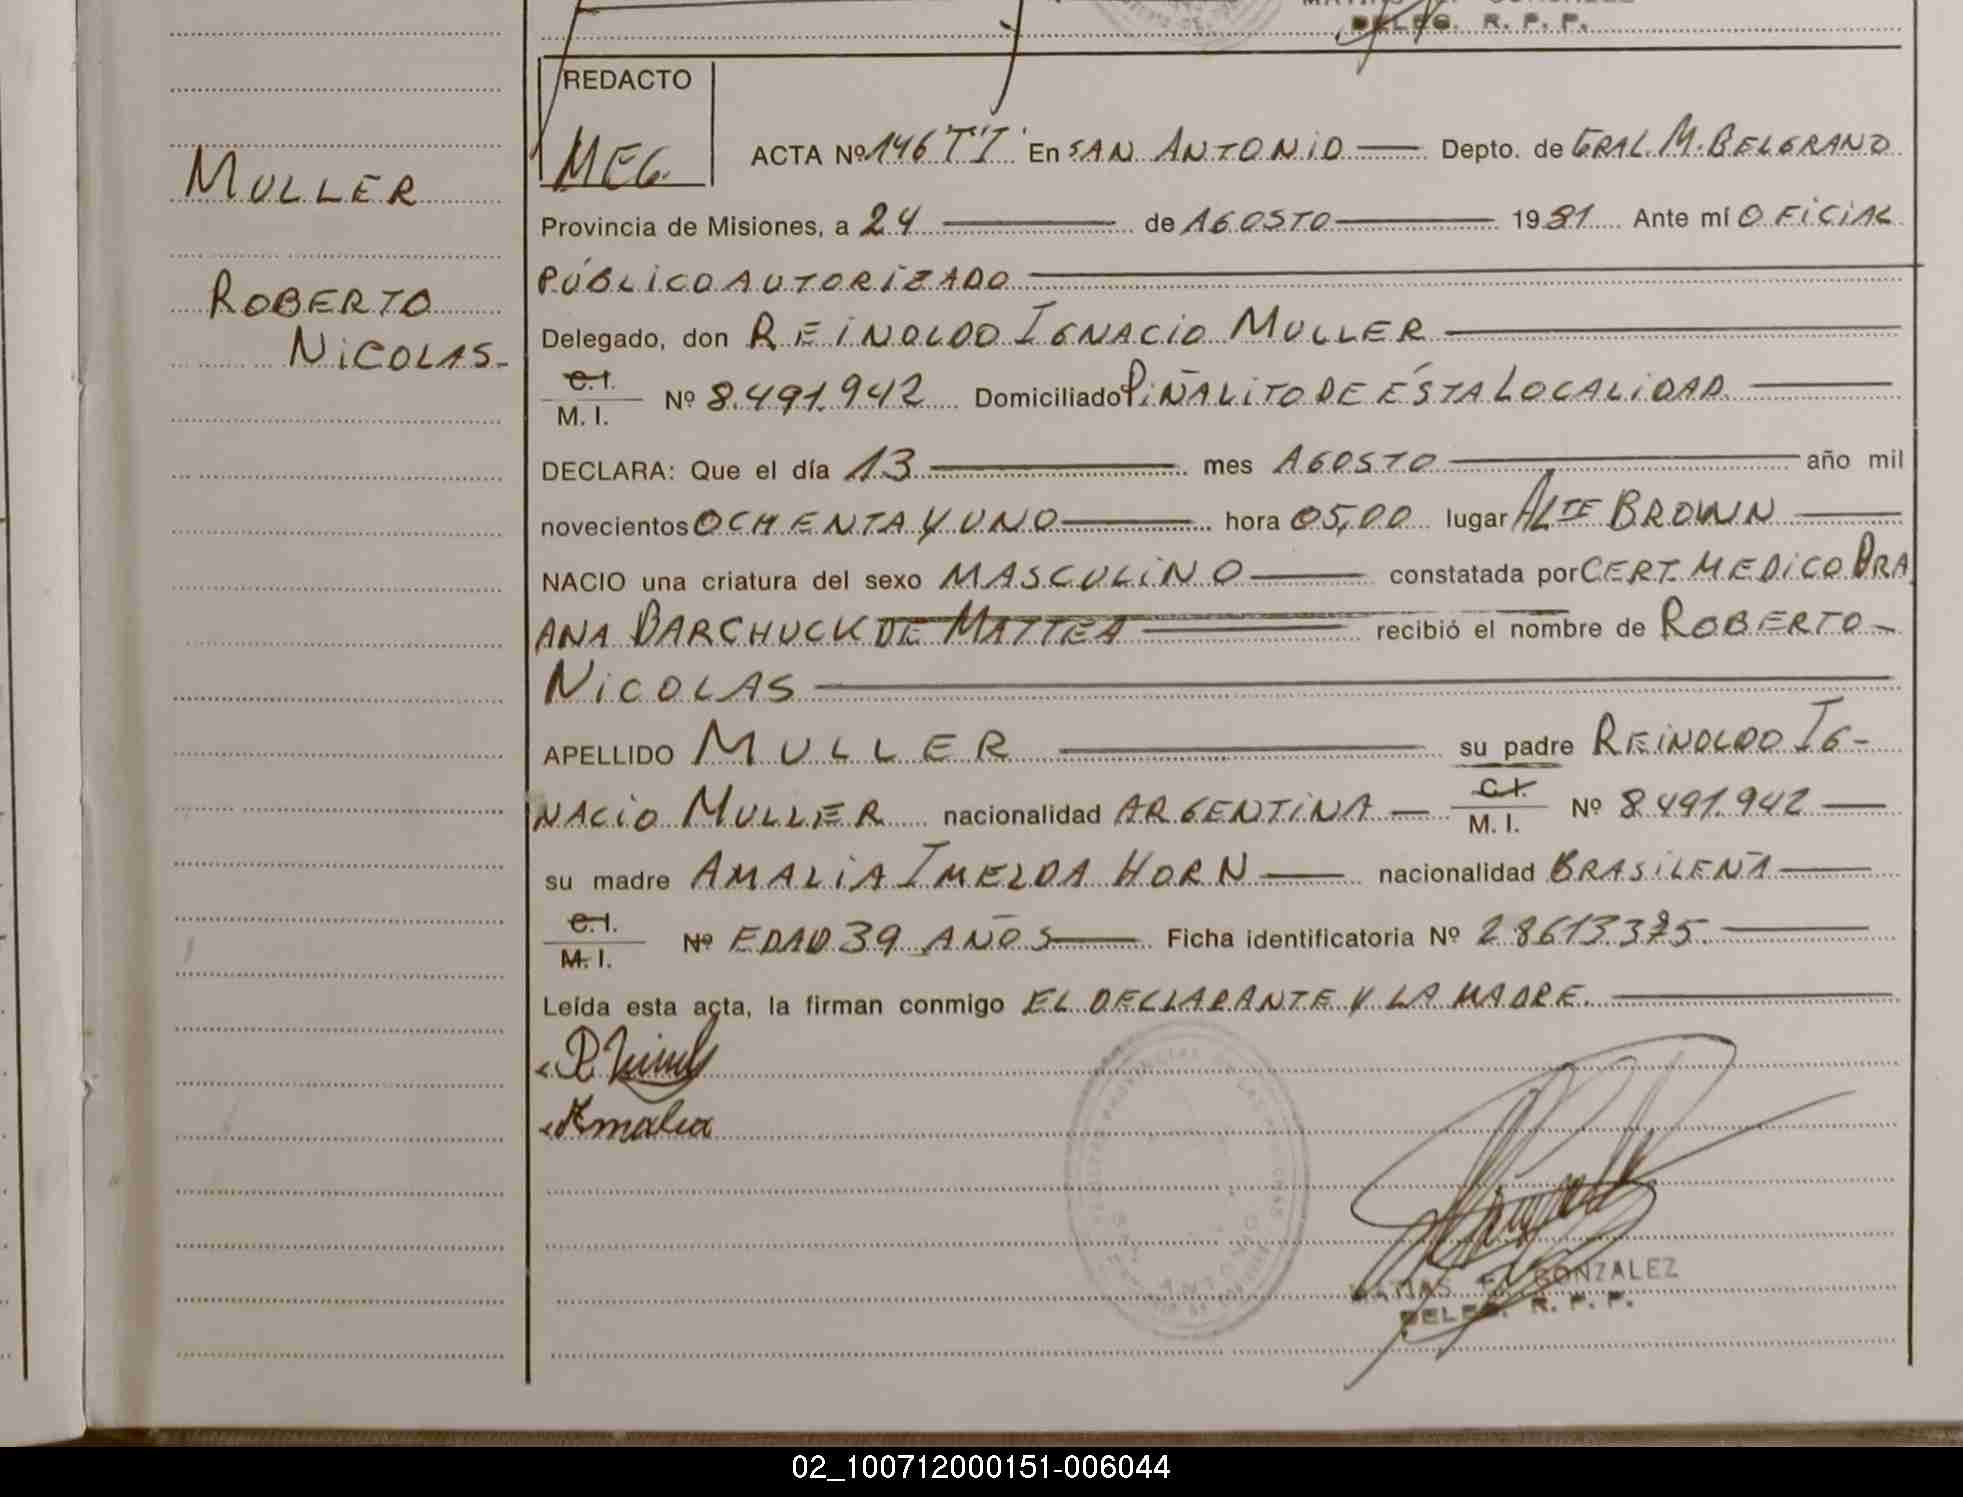 DELEG. R. P. P.
REDACTO
MEG.
MULLER
ROBERTO
NICOLAS-
ACTA Nº 146 "TI" En SAN ANTONIO Depto. de GRAL. M. BELGRANO
Provincia de Misiones, a 24 de AGOSTO 1981 Ante mí OFICIAL
PÚBLICO AUTORIZADO
Delegado, don REINOLDO IGNACIO MULLER
C.I.
M. I. Nº 8.491.942 Domiciliado PIÑALITO DE ÉSTA LOCALIDAD.
DECLARA: Que el día 13 mes AGOSTO año mil
novecientos OCHENTA Y UNO hora 05,00 lugar ALTE BROWN
NACIO una criatura del sexo MASCULINO constatada por CERT. MEDICO DRA
ANA BARCHUCK DE MATTEA recibió el nombre de ROBERTO-
NICOLAS
APELLIDO MULLER su padre REINOLDO IG-
NACIO MULLER nacionalidad ARGENTINA C.I.
M. I. Nº 8.491.942
su madre AMALIA IMELDA HORN nacionalidad BRASILEÑA
C.I.
M. I. Nº EDAD 39 AÑOS Ficha identificatoria Nº
Leída esta acta, la firman conmigo EL DECLARANTE Y LA MADRE.
Amalia
MATIAS F. GONZALEZ
DELEG. R. P. P.
02_100712000151-006044